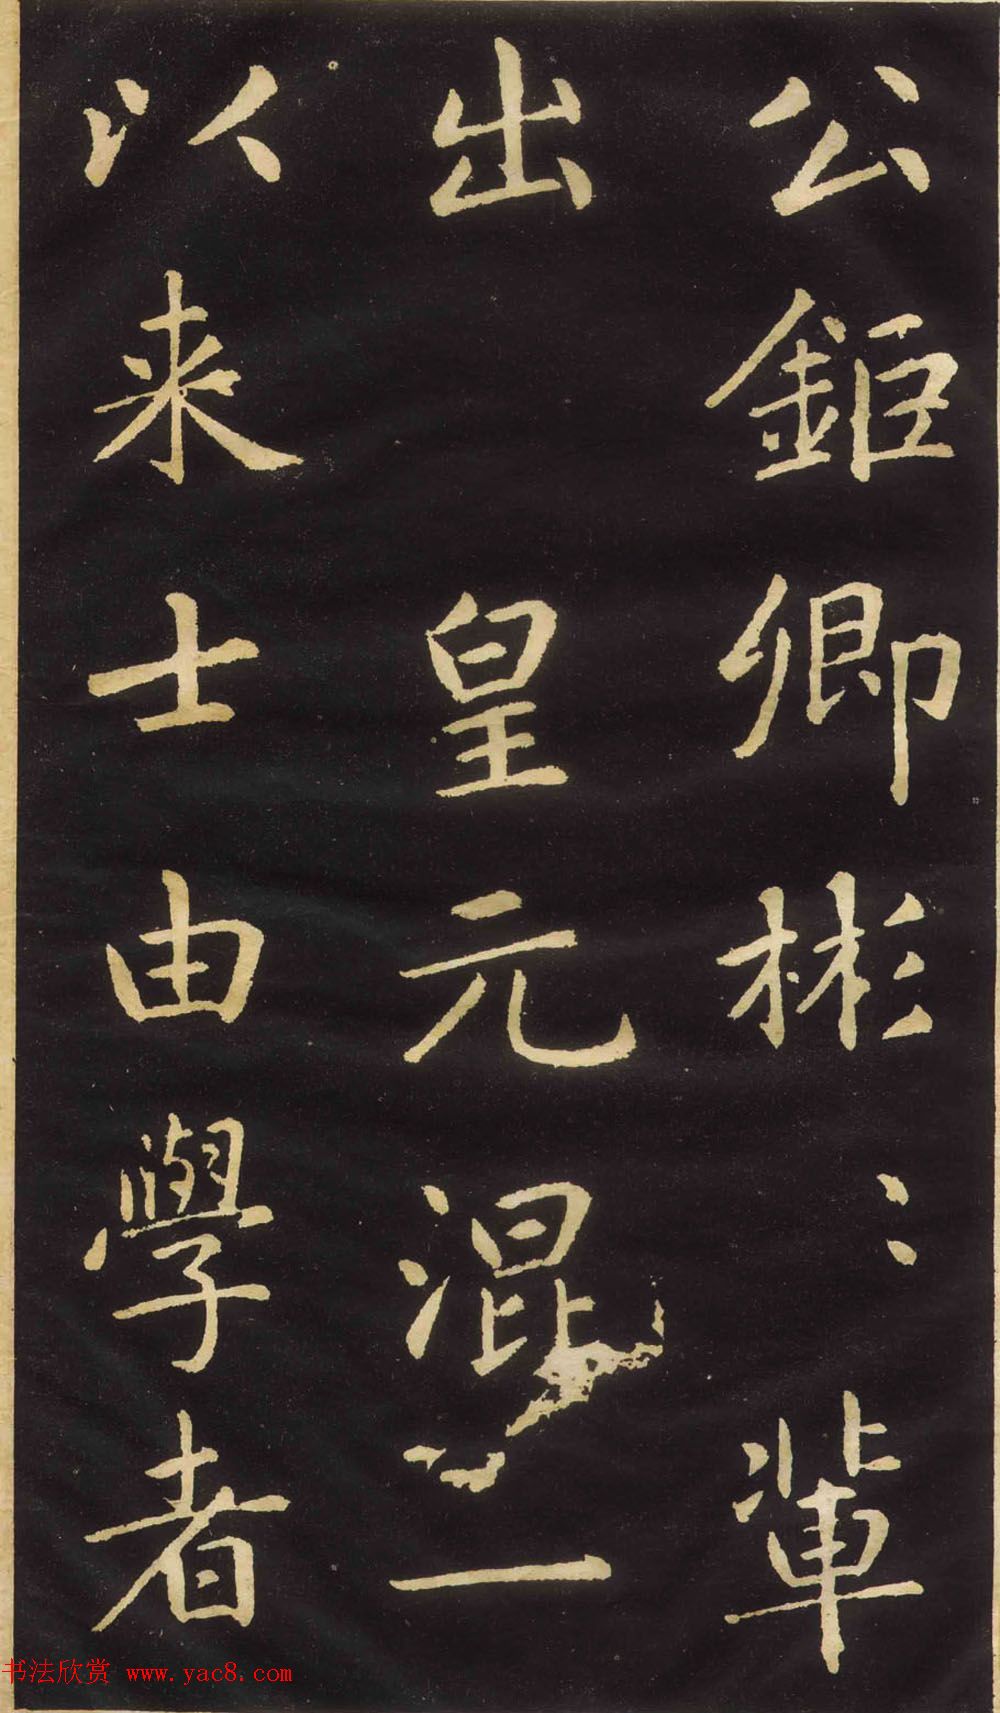 公鉅卿彬〻輩
出
皇元混一
以来士由學者
书法欣赏 www.yac8.com